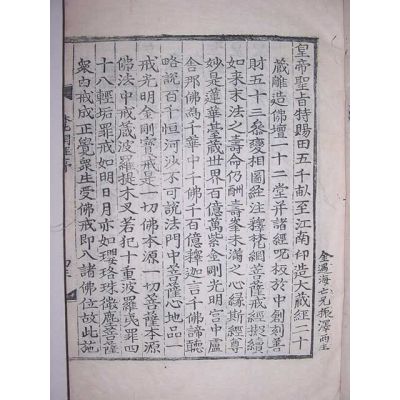 金遇海亡兄振澤兩主
皇帝聖旨特賜田五千畝至江南仰造大藏經二十
藏雕造佛壇一十二堂并諸經呪板於中創刻善
財五十三叅變相圖經注釋梵網菩薩戒經擬續
如来末法之壽命仍酬壽峯未滿之心緣斯經尊
妙是蓮華臺藏世界百億萬紫金剛光明宮中盧
舍那佛為千華中千佛千百億釋迦言千佛諦聽
略說百千恒河沙不可說法門中菩薩心地品一
戒光明金剛寶戒是一切佛本源一切菩薩本源
佛法中戒藏波羅提木叉若犯十重波羅夷罪四
十八輕垢罪戒如明日月亦如瓔珞珠微塵菩薩
衆由戒成正覺衆生受佛戒即入諸佛位故此施